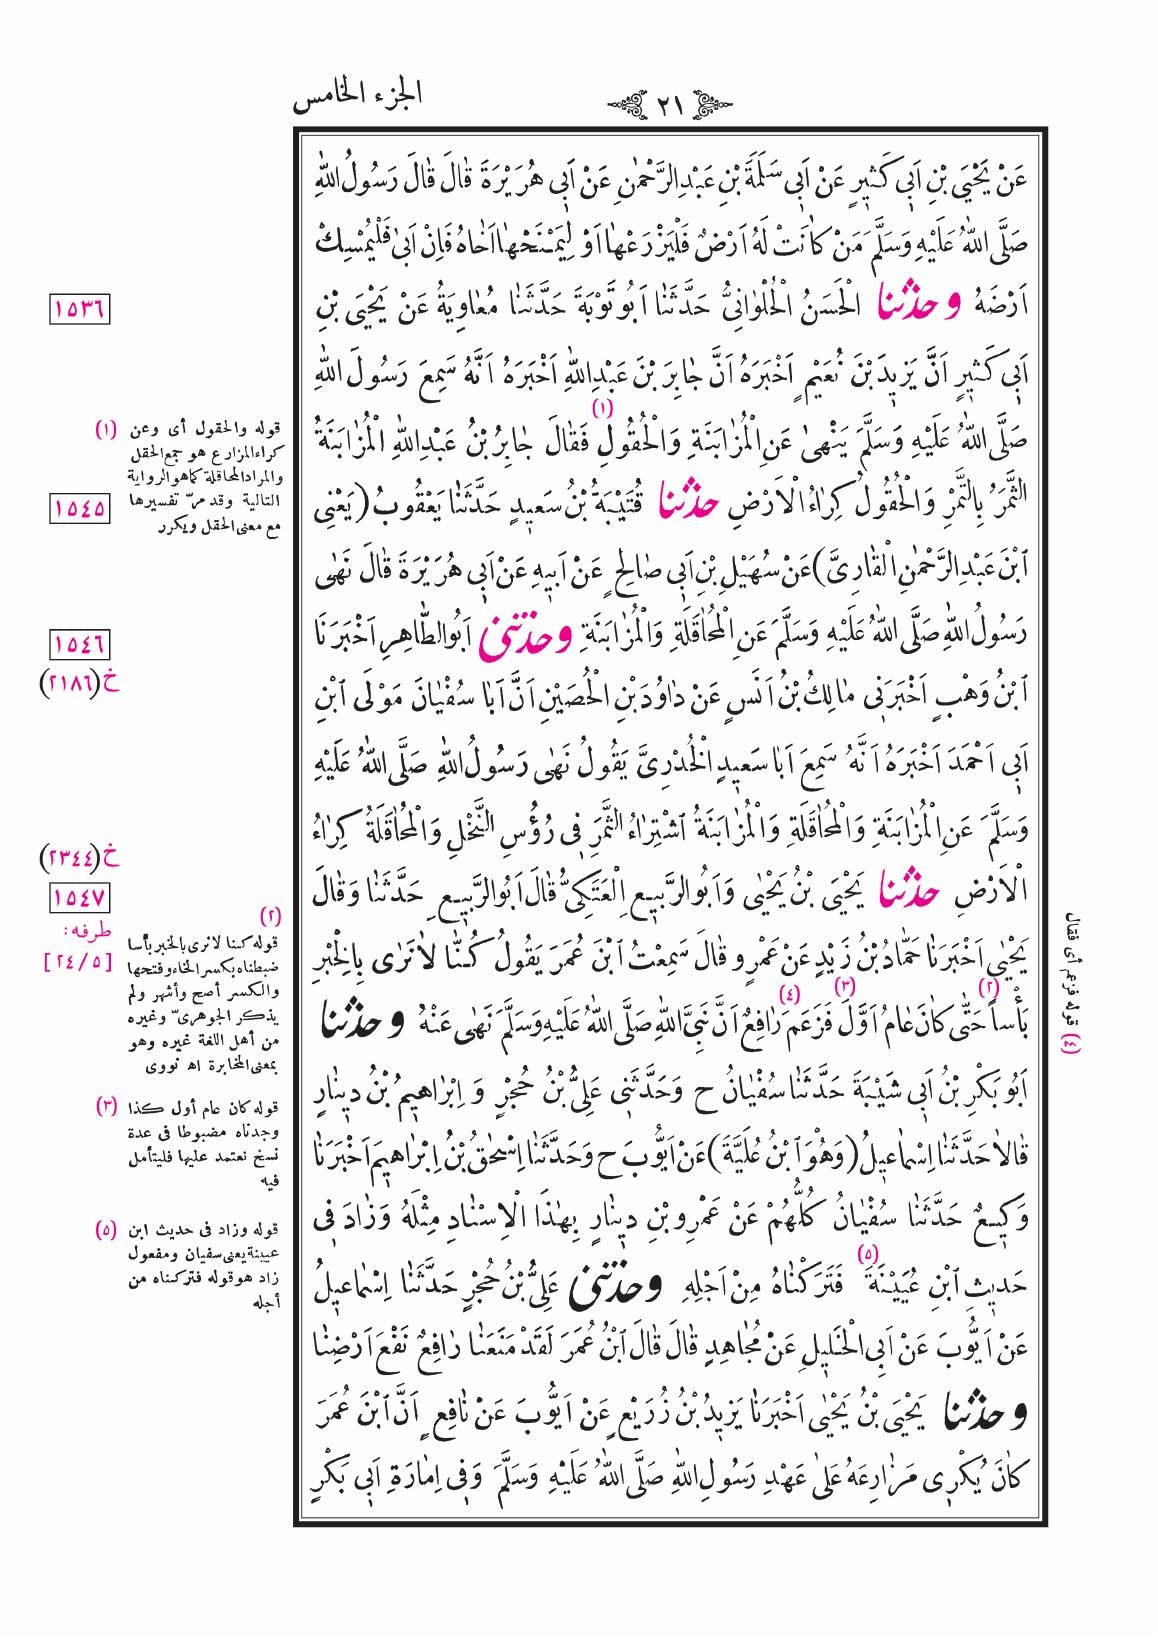 الجزء الخامس
٢١
عَنْ يَحْيَى بْنِ اَبِى كَثِيرٍ عَنْ اَبِى سَلَمَةَ بْنِ عَبْدِ الرَّحْمٰنِ عَنْ اَبِى هُرَيْرَةَ قَالَ قَالَ رَسُولُ اللّٰهِ
صَلَّى اللّٰهُ عَلَيْهِ وَسَلَّمَ مَنْ كَانَتْ لَهُ اَرْضٌ فَلْيَزْرَعْهَا اَوْ لِيَمْنَحْهَا اَخَاهُ فَاِنْ اَبىٰ فَلْيُمْسِكْ
اَرْضَهُ وحدثنا الْحَسَنُ الْحُلْوَانِىُّ حَدَّثَنَا اَبُو تَوْبَةَ حَدَّثَنَا مُعَاوِيَةُ عَنْ يَحْيَى بْنِ
اَبِى كَثِيرٍ اَنَّ يَزِيدَ بْنَ نُعَيْمٍ اَخْبَرَهُ اَنَّ جَابِرَ بْنَ عَبْدِ اللّٰهِ اَخْبَرَهُ اَنَّهُ سَمِعَ رَسُولَ اللّٰهِ
صَلَّى اللّٰهُ عَلَيْهِ وَسَلَّمَ يَنْهىٰ عَنِ الْمُزَابَنَةِ وَالْحُقُولِ (١) فَقَالَ جَابِرُ بْنُ عَبْدِ اللّٰهِ الْمُزَابَنَةُ
الثَّمَرُ بِالتَّمْرِ وَالْحُقُولُ كِرَاءُ الْاَرْضِ حدثنا قُتَيْبَةُ بْنُ سَعِيدٍ حَدَّثَنَا يَعْقُوبُ (يَعْنِى
ابْنَ عَبْدِ الرَّحْمٰنِ الْقَارِىَّ) عَنْ سُهَيْلِ بْنِ اَبِى صَالِحٍ عَنْ اَبِيهِ عَنْ اَبِى هُرَيْرَةَ قَالَ نَهٰى
رَسُولُ اللّٰهِ صَلَّى اللّٰهُ عَلَيْهِ وَسَلَّمَ عَنِ الْمُحَاقَلَةِ وَالْمُزَابَنَةِ وحدثنى اَبُو الطَّاهِرِ اَخْبَرَنَا
ابْنُ وَهْبٍ اَخْبَرَنِى مَالِكُ بْنُ اَنَسٍ عَنْ دَاوُدَ بْنِ الْحُصَيْنِ اَنَّ اَبَا سُفْيَانَ مَوْلَى ابْنِ
اَبِى اَحْمَدَ اَخْبَرَهُ اَنَّهُ سَمِعَ اَبَا سَعِيدٍ الْخُدْرِىَّ يَقُولُ نَهٰى رَسُولُ اللّٰهِ صَلَّى اللّٰهُ عَلَيْهِ
وَسَلَّمَ عَنِ الْمُزَابَنَةِ وَالْمُحَاقَلَةِ وَالْمُزَابَنَةُ اشْتِرَاءُ الثَّمَرِ فِى رُؤُسِ النَّخْلِ وَالْمُحَاقَلَةُ كِرَاءُ
الْاَرْضِ حدثنا يَحْيَى بْنُ يَحْيىٰ وَاَبُو الرَّبِيعِ الْعَتَكِىُّ قَالَ اَبُو الرَّبِيعِ حَدَّثَنَا وَقَالَ
يَحْيىٰ اَخْبَرَنَا حَمَّادُ بْنُ زَيْدٍ عَنْ عَمْرٍو قَالَ سَمِعْتُ ابْنَ عُمَرَ يَقُولُ كُنَّا لَا نَرٰى بِالْخِبْرِ
بَأْساً (٢) حَتّٰى كَانَ عَامُ اَوَّلَ (٣) فَزَعَمَ (٤) رَافِعٌ اَنَّ نَبِىَّ اللّٰهِ صَلَّى اللّٰهُ عَلَيْهِ وَسَلَّمَ نَهٰى عَنْهُ وحدثنا
اَبُو بَكْرِ بْنُ اَبِى شَيْبَةَ حَدَّثَنَا سُفْيَانُ ح وَحَدَّثَنِى عَلِىُّ بْنُ حُجْرٍ وَ اِبْرَاهِيمُ بْنُ دِينَارٍ
قَالَا حَدَّثَنَا اِسْمَاعِيلُ (وَهُوَ ابْنُ عُلَيَّةَ) عَنْ اَيُّوبَ ح وَحَدَّثَنَا اِسْحٰقُ بْنُ اِبْرَاهِيمَ اَخْبَرَنَا
وَكِيعٌ حَدَّثَنَا سُفْيَانُ كُلُّهُمْ عَنْ عَمْرِو بْنِ دِينَارٍ بِهٰذَا الْاِسْنَادِ مِثْلَهُ وَزَادَ فِى
حَدِيثِ ابْنِ عُيَيْنَةَ (٥) فَتَرَكْنَاهُ مِنْ اَجْلِهِ وحدثنى عَلِىُّ بْنُ حُجْرٍ حَدَّثَنَا اِسْمَاعِيلُ
عَنْ اَيُّوبَ عَنْ اَبِى الْخَلِيلِ عَنْ مُجَاهِدٍ قَالَ قَالَ ابْنُ عُمَرَ لَقَدْ مَنَعَنَا رَافِعٌ نَفْعَ اَرْضِنَا
وحدثنا يَحْيَى بْنُ يَحْيىٰ اَخْبَرَنَا يَزِيدُ بْنُ زُرَيْعٍ عَنْ اَيُّوبَ عَنْ نَافِعٍ اَنَّ ابْنَ عُمَرَ
كَانَ يُكْرِى مَزَارِعَهُ عَلىٰ عَهْدِ رَسُولِ اللّٰهِ صَلَّى اللّٰهُ عَلَيْهِ وَسَلَّمَ وَفِى اِمَارَةِ اَبِى بَكْرٍ
(٤) قوله فزعم أى فقال
(١) قوله والحقول أى وعن
كراء المزارع هو جمع الحقل
والمراد المحاقلة كما هو الرواية
التالية وقد مرّ تفسيرها
مع معنى الحقل ويكرر
(٢)
قوله كنا لا نرى بالخبر بأسا
ضبطناه بكسر الخاء وفتحها
والكسر أصح وأشهر ولم
يذكر الجوهرىّ وغيره
من أهل اللغة غيره وهو
بمعنى المخابرة اه نووى
(٣) قوله كان عام أول كذا
وجدناه مضبوطا فى عدة
نسخ نعتمد عليها فليتأمل
فيه
(٥) قوله وزاد فى حديث ابن
عيينة يعنى سفيان ومفعول
زاد هو قوله فتركناه من
أجله
١٥٣٦
١٥٤٥
١٥٤٦
خ (٢١٨٦)
خ (٢٣٤٤)
١٥٤٧
طرفه:
[٢٤/٥]